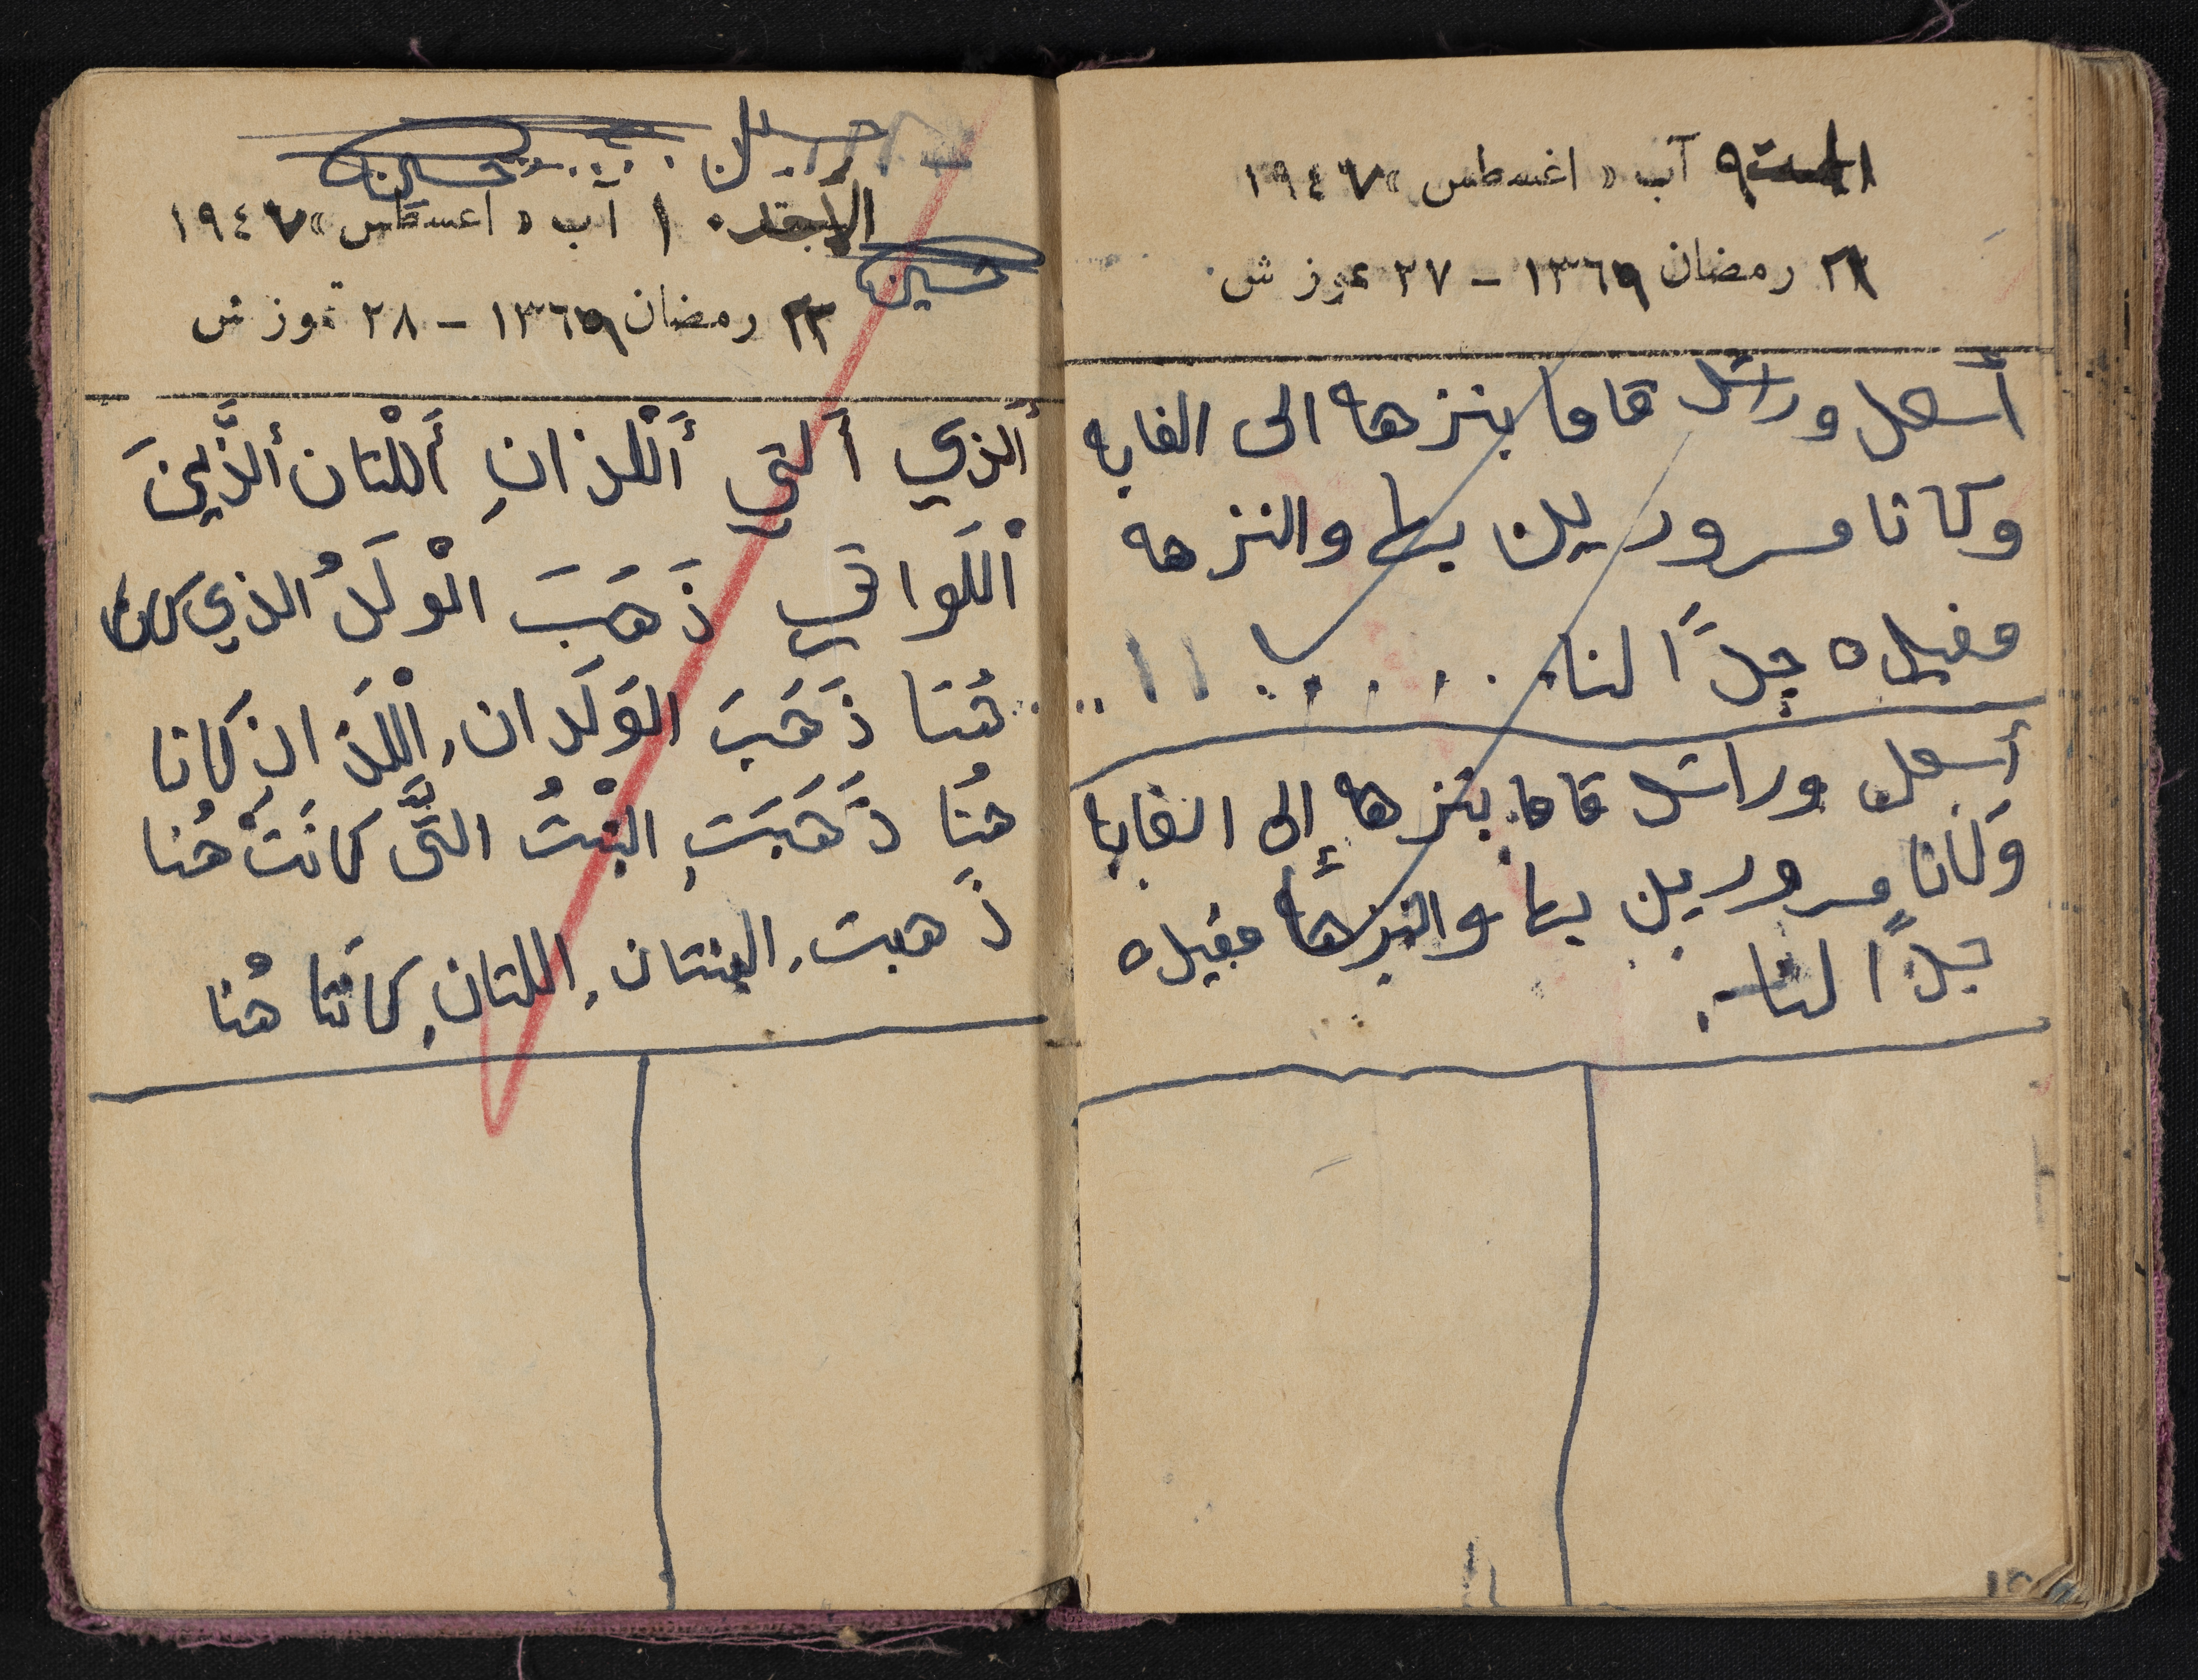 ٩ آب « اغسطس » ١٩٤٧
رمضان ١٣٦٩ – ٢٧ تموز ش
أسعد ورائد قاما بنزهه الى الغابه
وكانا مسرورين بها والنزهه
مفيده جدًا لنا.......
أسعد ورائد قاما بنزها إلى الغابا
وَكانا مسرورين بها والنزها مفيده
جدًا لنا.
حسين حسين
الأحد ١٠ آب « اغسطس » ١٩٤٧
حسين
٢٣ رمضان ١٣٦٩ – ٢٨ تموز ش
أَلذي أَلتي أَلْلذانِ أَللْتان أَلذَّينَ
اْللَواتي ذَهَبَ الْولَدُ الذي كان
هُنَا ذَهَبَ الوَلَدانِ اْللَذانِ كَانا
هُنَا ذَهَبَتِ البْنتُ التَّى كانَتْ هُنا
ذَهبتِ البنتانِ اللتانِ كانَتا هُنا